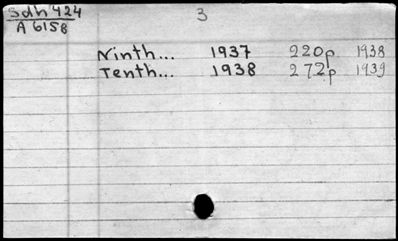 Sdh 424
A 615g
3
Ninth... 1937 220p 1938
Tenth... 1938 272p 1939